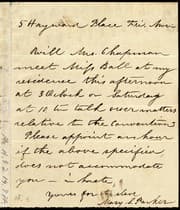 5 Hayward Place
Will Mrs. Chapman
meet Miss Ball at my
residence this afternoon
at 3 Oclock or Saturday
at 10 to talk over matters
relative to the Convention
Please appoint an hour
if the above specified
does not accommodate
you — in haste,
yours for
Mary S. Parker